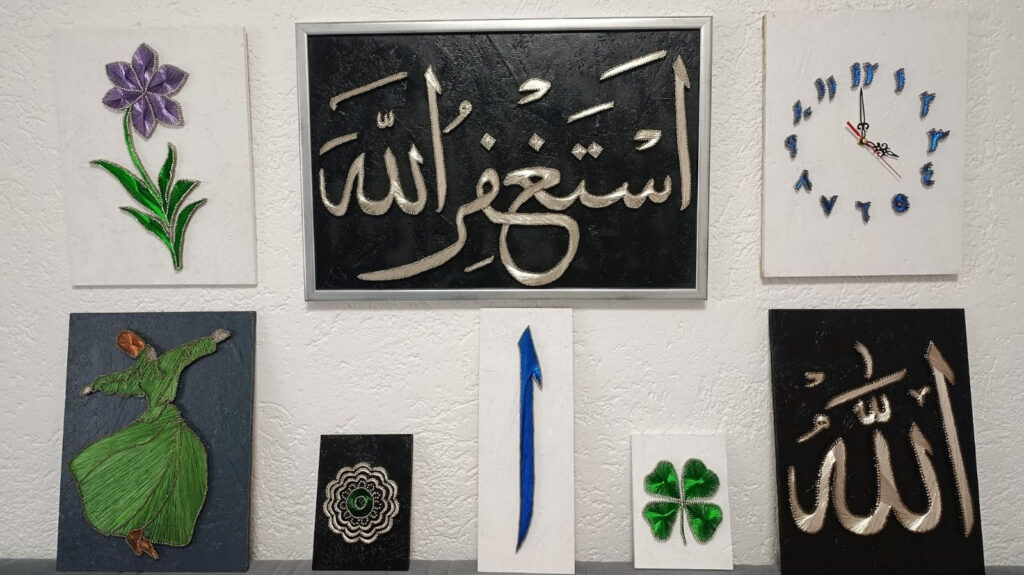 أَسْتَغْفِرُ اللّٰهَ
١٢
١
٢
٣
٤
٥
٦
٧
٨
٩
١٠
١١
ا
اللّٰهُ